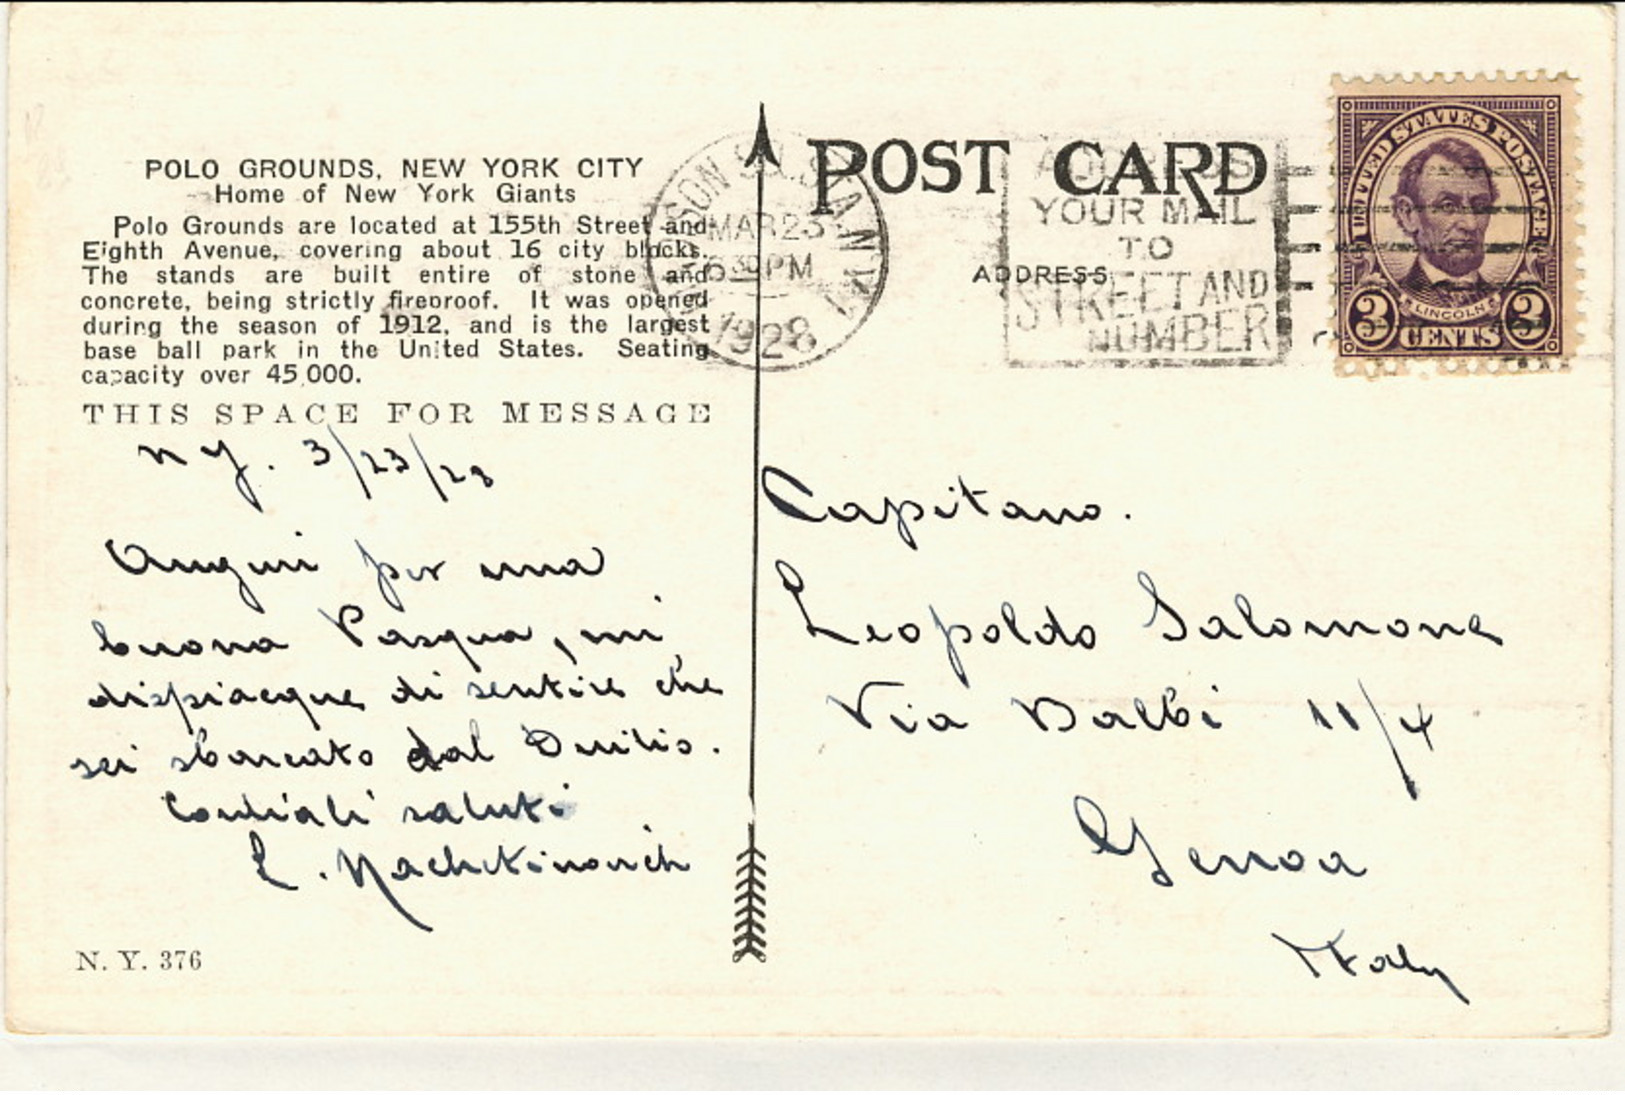 POLO GROUNDS, NEW YORK CITY
Home of New York Giants
Polo Grounds are located at 155th Street and
Eighth Avenue, covering about 16 city blocks.
The stands are built entire of stone and
concrete, being strictly fireproof. It was opened
during the season of 1912, and is the largest
base ball park in the United States. Seating
capacity over 45,000.
THIS SPACE FOR MESSAGE
NY. 3/23/28
Auguri per una
buona Pasqua, mi
dispiacque di sentire che
sei sbarcato dal Duilio.
Cordiali saluti
L.
N. Y. 376
POST CARD
ADDRESS
MADISON SQ. STA. N.Y.
MAR 23
6 30 PM
1928
ADDRESS
YOUR MAIL
TO
STREET AND
NUMBER
UNITED STATES POSTAGE
LINCOLN
3 CENTS 3
Capitano.
Leopoldo Salomone
Via Balbi 11/4
Genoa
Italy